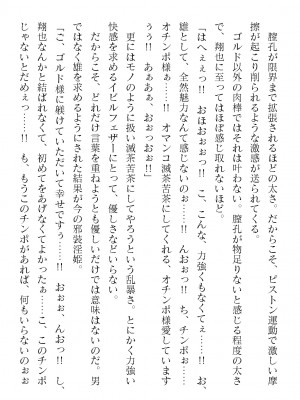 膣孔が限界まで拡張されるほどの太さ。だからこそ、ピストン運動で激しい摩
擦が起こり削られるような激感が送られてくる。
ゴルド以外の肉棒ではそれは叶わない。膣孔が物足りないと感じる程度の太さ
で、翔也に至ってはほぼ感じ取れないほど。
「はへぇぇっ!! おほおぉぉっ!! こ、こんな、力強くもなくてぇ……!! お、
雄として、全然魅力なんて感じないのぉ……!! んおぉっ!! ち、チンポぉ……
っ!! オチンポ、オマンコ滅茶苦茶にしてくれる オチンポ様愛しています
……!! あぁぁぁ、おっおぉぉ!!」
更にはモノのように扱い滅茶苦茶にしてやろうという乱暴さ。とにかく力強い
快感を求めるイビルフェザーにとって、優しさなどいらない。
だからこそ、どれだけ言葉を重ねようとも優しいだけでは意味はないのだ。男
ではなく雄を求めるようにされた結果が今の邪装淫姫。
「こ、ゴルド様に躾けていただいて幸せですぅ……!! おぉぉ、んおっ!! し、
翔也なんかと結ばれなくて、初めてをあげなくてよかったぁ……こ、このチンポ
じゃないとだめぇっ……!! も、もうこのチンポがあれば、何もいらないのぉぉ